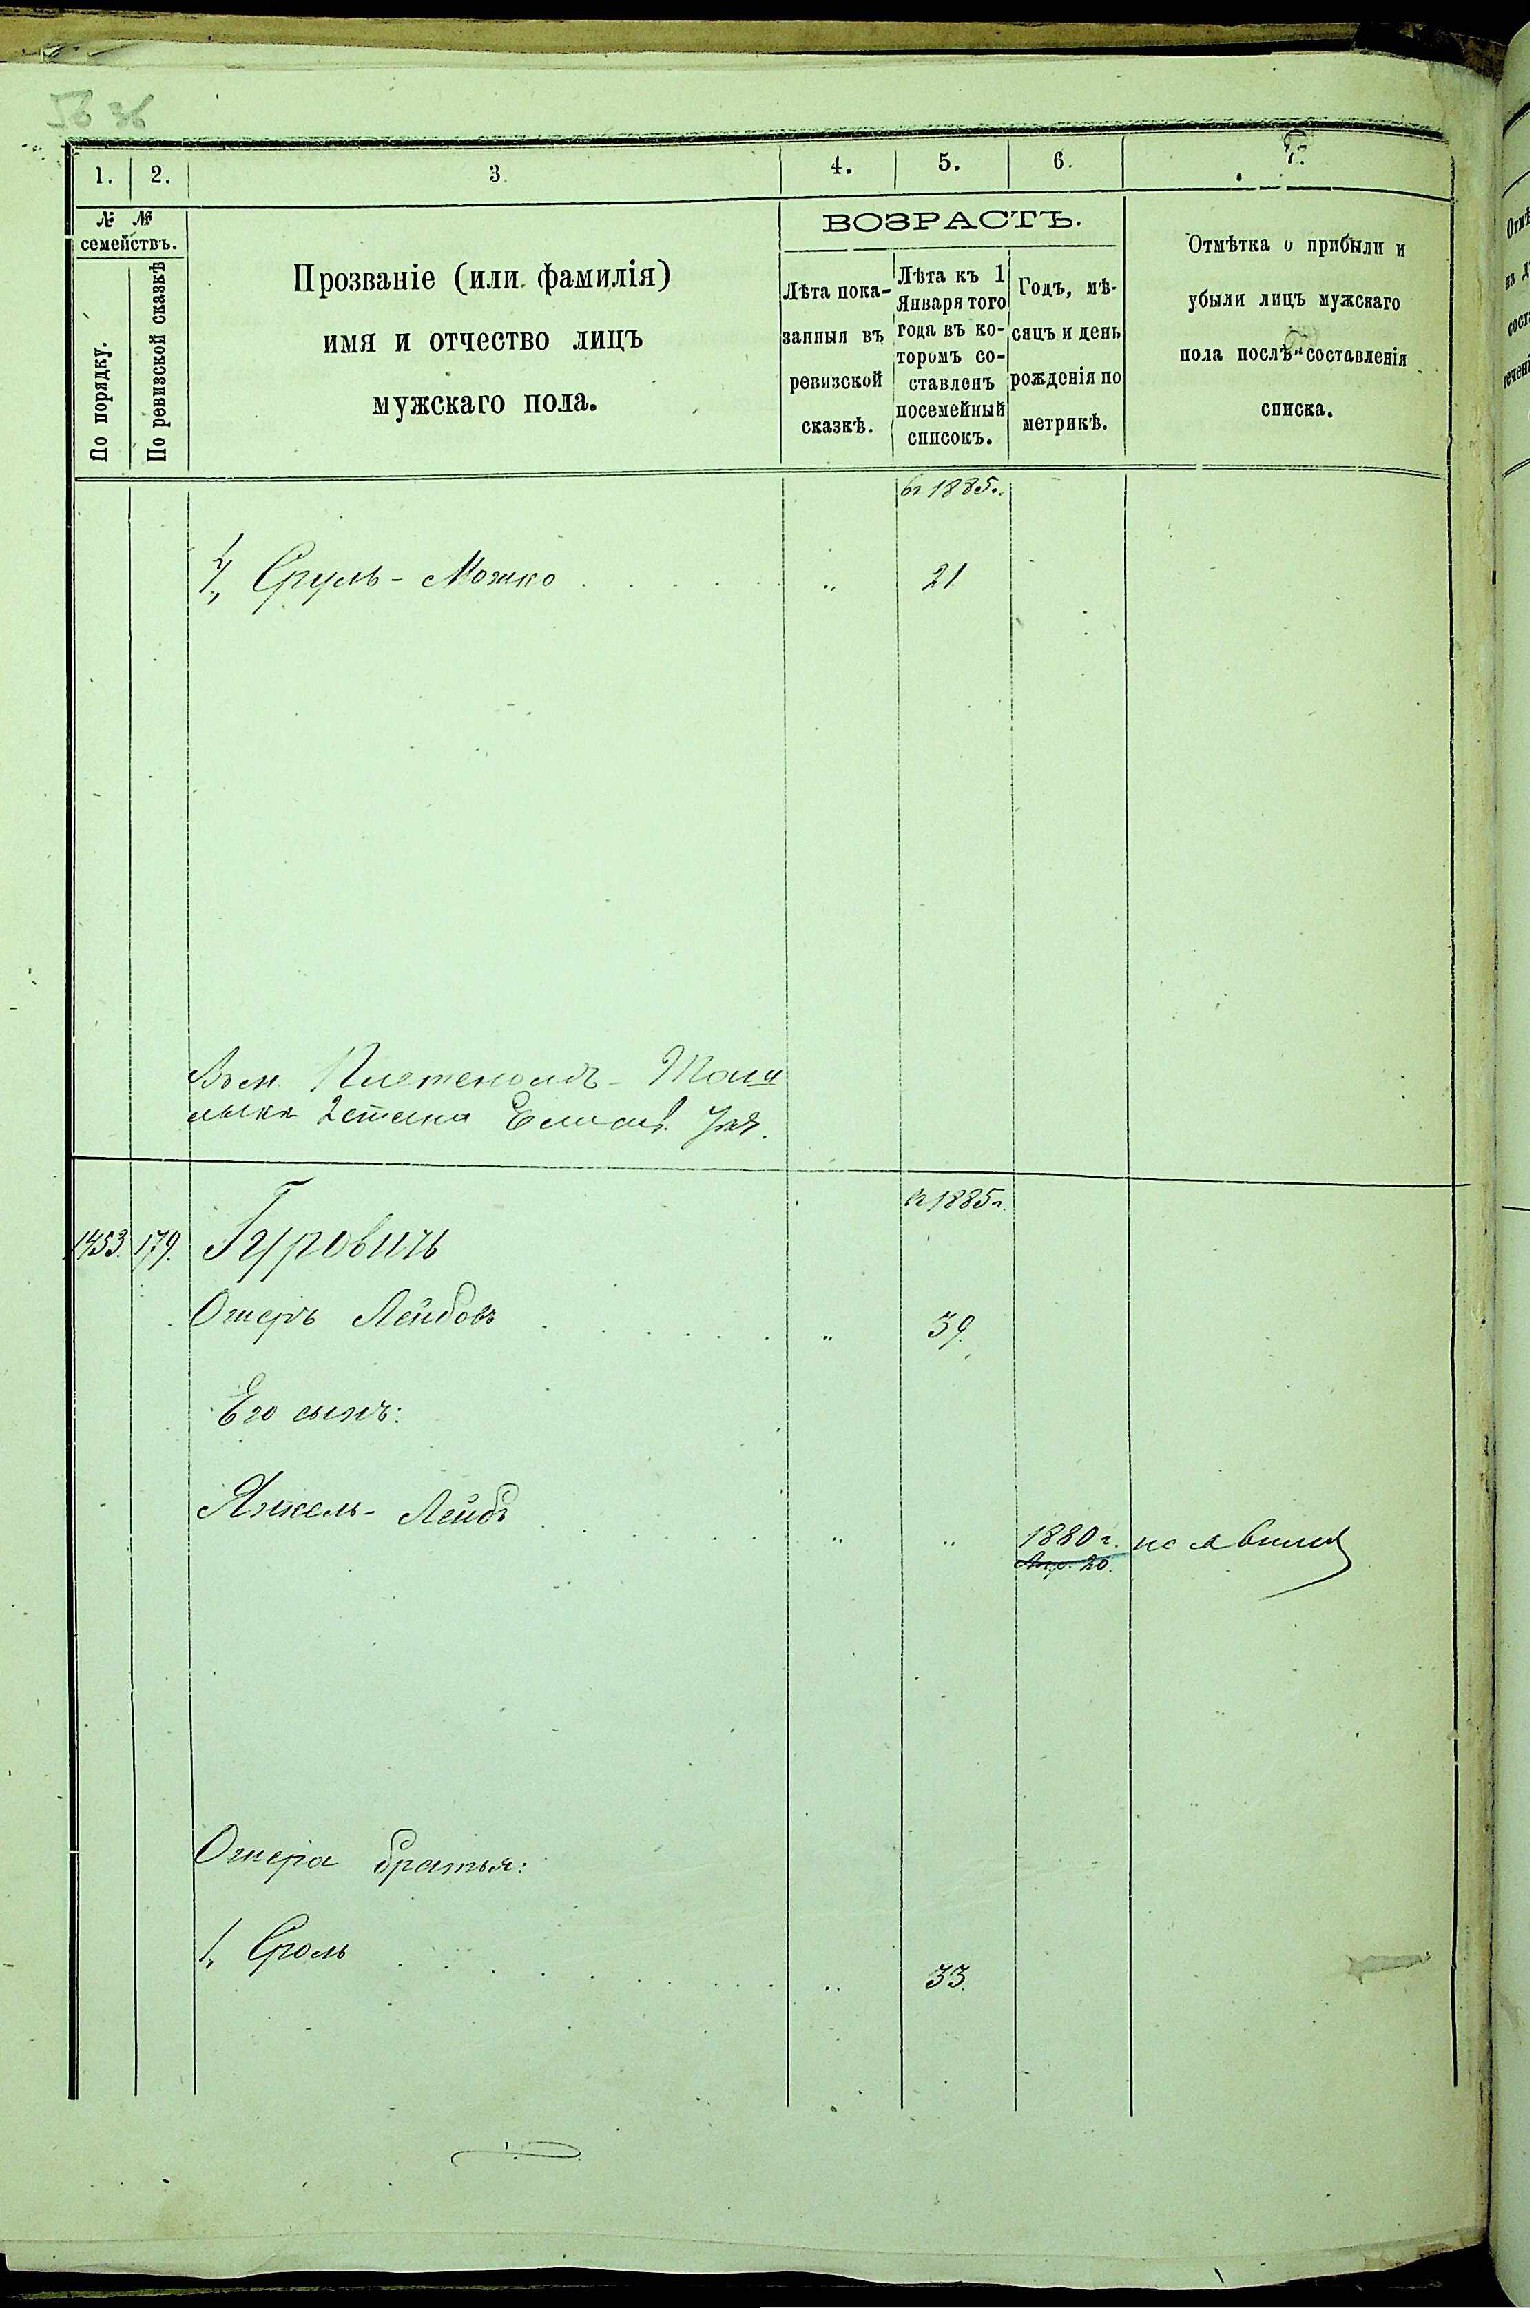 36
1. 2. 3. 4. 5. 6. 7.
№ №
семействъ.
По порядку.
По ревизской сказкѣ
Прозваніе (или фамилія)
имя и отчество лицъ
мужскаго пола.
ВОЗРАСТЪ.
Лѣта пока-
занныя въ
ревизской
сказкѣ.
Лѣта къ 1
Января того
года въ ко-
торомъ со-
ставленъ
посемейный
списокъ.
Годъ, мѣ-
сяцъ и день
рожденія по
метрикѣ.
Отмѣтка о прибыли и
убыли лицъ мужскаго
пола послѣ составленія
списка.
1885г.
4, Сруль-Мошко " 21
2 стана Елисав.
1885г.
1453. 179. Гуровичъ
Ошеръ Лейбовъ " 39.
Его сынъ:
Янкель-Лейбъ " " 1880 г. не явился
Апр. 20.
Ошера братья:
1, Сроль " 33.